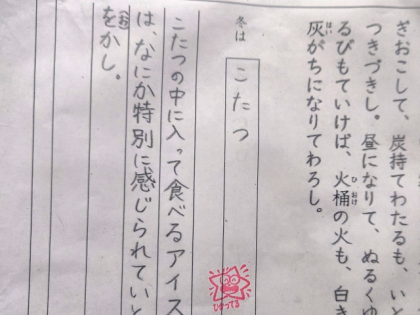 ぎおこして、炭持てわたるも、いと
つきづきし。昼になりて、ぬるくゆ
るびもていけば、火桶の火も、白き
灰がちになりてわろし。
ひおけ
はい
冬は
こたつ
こたつの中に入って食べるアイス
は、なにか特別に感じられていと
をかし。
お